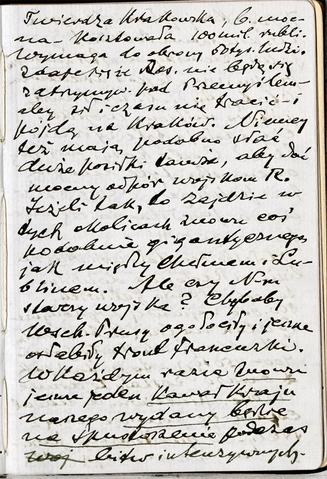 Twierdza Krakowska, b. moc-
na kosztowała 100 mil. rubli.
Wymaga do obrony 60 tys. ludzi.
zdaje się że Ros. nie będą się
zatrzymyw. pod Przemyślem
aby sił i czasu nie tracić i
pójdą na Kraków. Niemcy
też mają podobno słać
duże posiłki tamże, aby dać
mocny odpór wojskom R.
Jeżeli tak, to zajdzie w
tych okolicach znowu coś
podobnie gigantycznego
jak między Chełmem i Lu-
blinem. Ale czy Nm.
starczy wojska? Chybaby
Wsch. Prusy ogołocili i jeszcze
osłabili front francuski.
W każdym razie znowu
jeszcze jeden kawał kraju
naszego wydany będzie
na spustoszenie podczas
bitw intenzywnych.